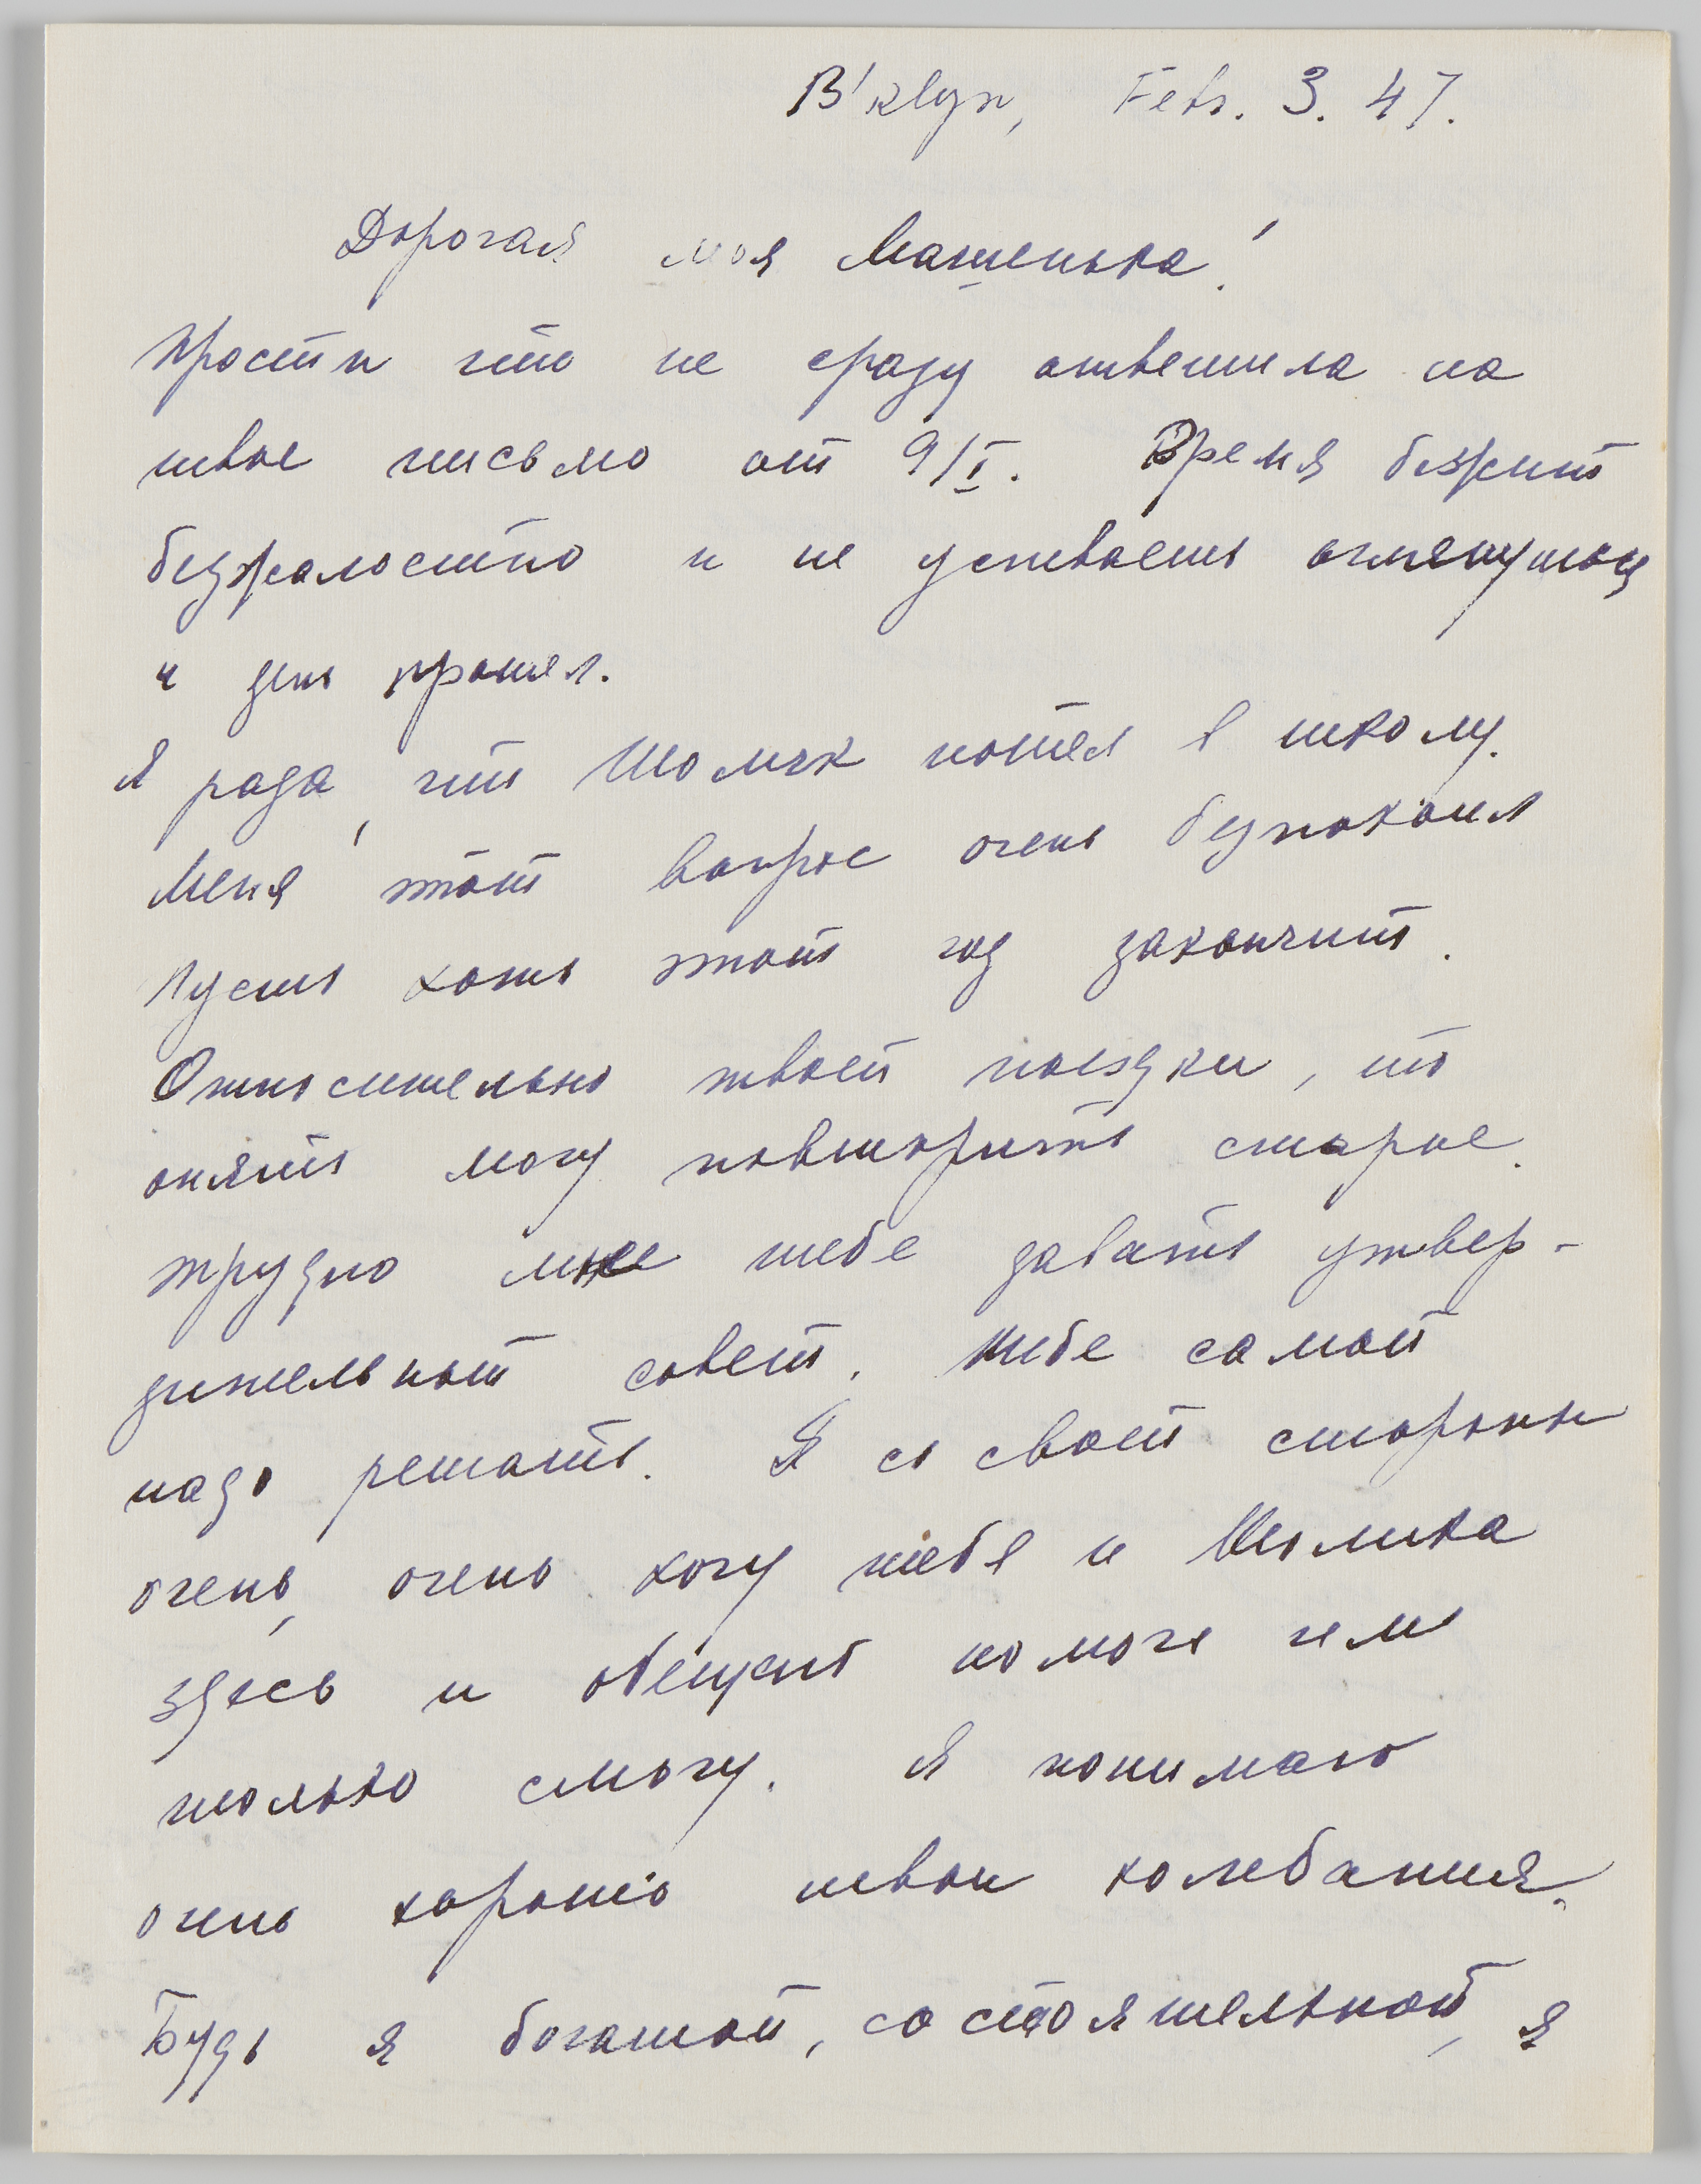 B'klyn, Febr. 3. 47.
Дорогая моя Машенька!
Прости что не сразу ответила на
твое письмо от 9/I. Время бежит
безжалостно и не успеваешь оглянуться
и день прошел.
Я рада, что Шомик пошел в школу.
Меня этот вопрос очень безпокоил
Пусть хоть этот год закончит.
Относительно твоей поездки, то
опять могу повторить старое.
Трудно мне тебе давать утвер-
дительный совет. Тебе самой
надо решать. Я со своей стороны
очень, очень хочу тебя и Шомика
здесь и обещаю помочь чем
только смогу. Я понимаю
очень хорошо твои колебания.
Будь я богатой, состоятельной, я